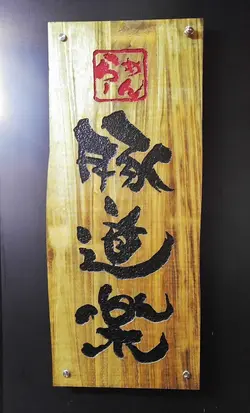 らーめん
豚道楽